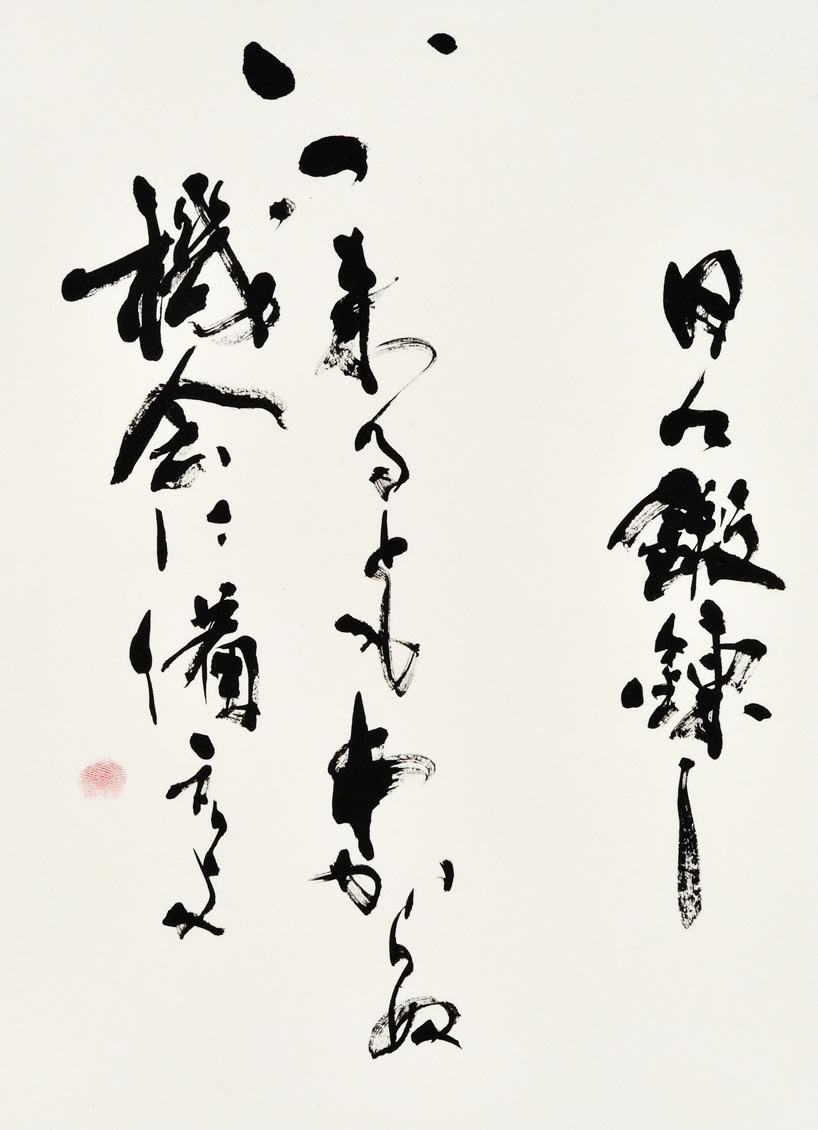 日々鍛錬し
いつ来るともわからぬ
機会に備える